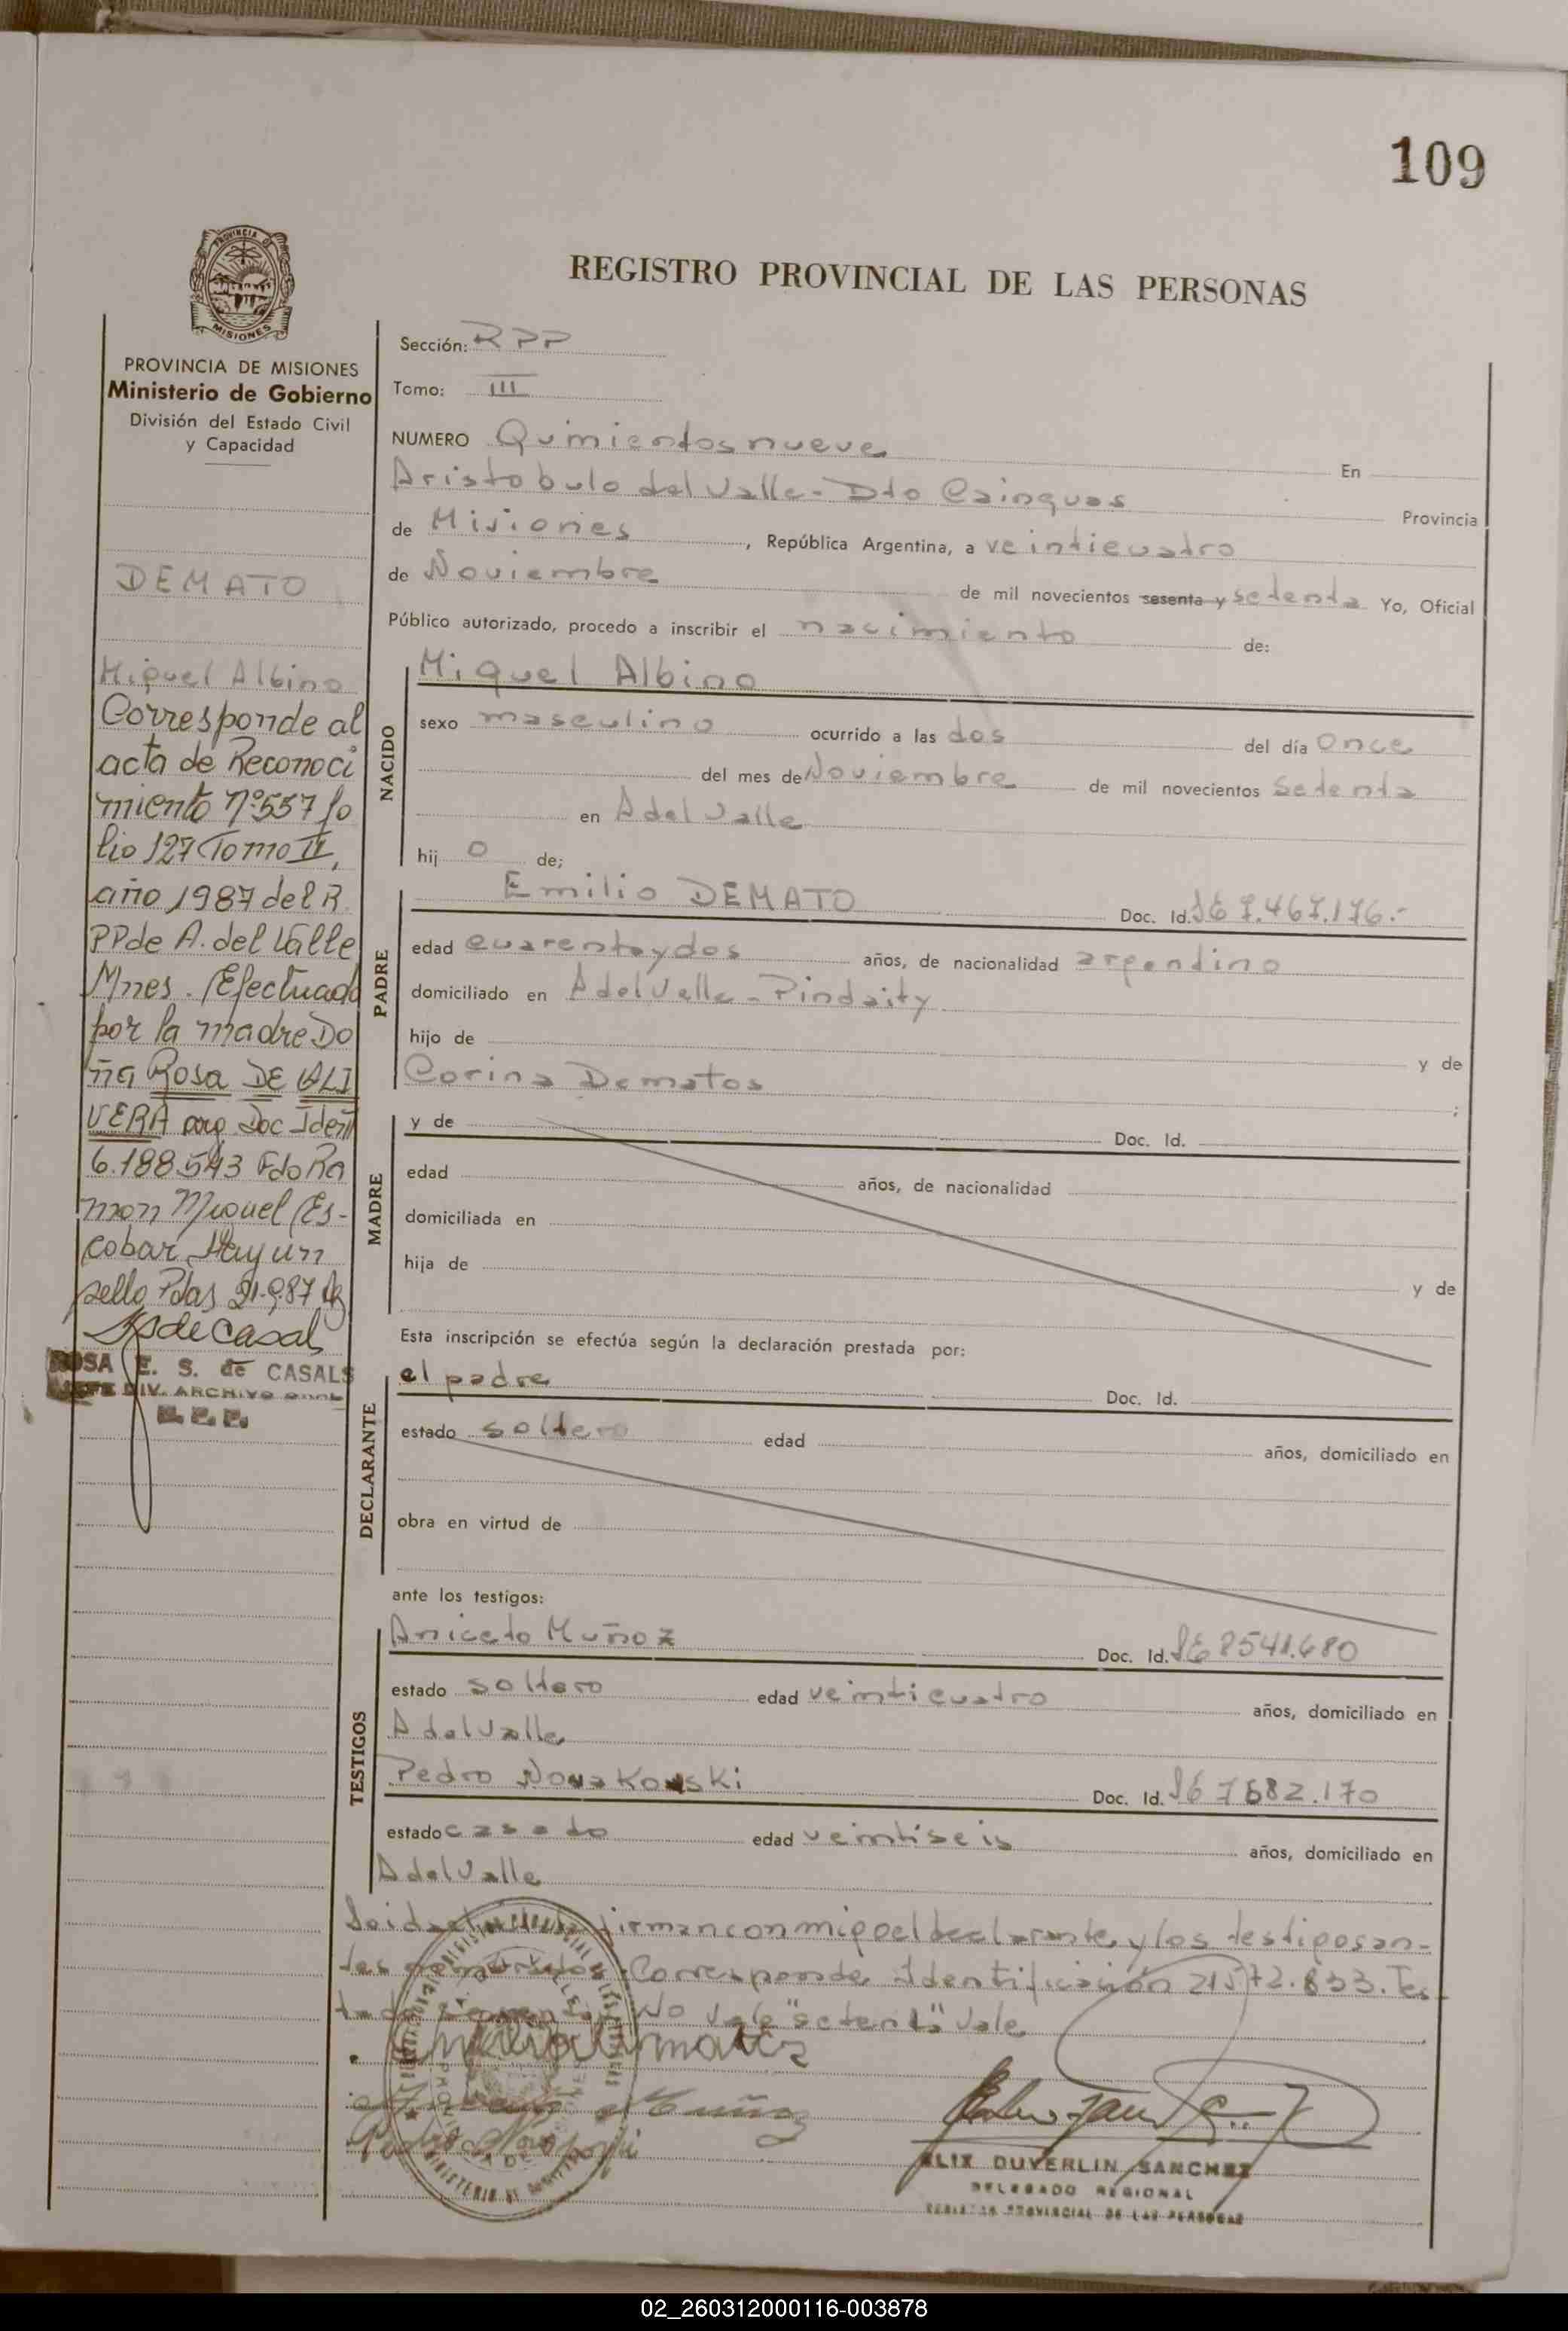 109
REGISTRO PROVINCIAL DE LAS PERSONAS
PROVINCIA DE MISIONES
Ministerio de Gobierno
División del Estado Civil
y Capacidad
DEMATO
Miguel Albino
Corresponde al
acta de Reconoci
miento Nº557 fo
lio 127 Tomo II,
año 1987 del R.
PP de A. del Valle
Mnes. Efectuado
por la madre Do
ña Rosa DE OLI
VERA arg. Doc Ident
6.188.543 Fdo Ra
mon Miguel Es-
cobar Hay un
sello Pdas 21-9-87
ROSA E. S. de CASALS
JEFE DIV. ARCHIVO GRAL
R. P. P.
Sección: RPP
Tomo: III
NUMERO Quinientos nueve En
Aristobulo del Valle - Dto Cainguas Provincia
de Misiones, República Argentina, a veinticuatro
de Noviembre de mil novecientos sesenta y setenta Yo, Oficial
Público autorizado, procedo a inscribir el nacimiento de:
NACIDO
Miguel Albino
sexo masculino ocurrido a las dos del día once
del mes de Noviembre de mil novecientos setenta
en A del Valle
hij o de;
PADRE
Emilio DEMATO Doc. Id. 7.467.176.-
edad cuarenta y dos años, de nacionalidad argentino
domiciliado en A del Valle - Pindaity
hijo de y de
Corina Dematos ;
MADRE
y de Doc. Id.
edad años, de nacionalidad
domiciliada en
hija de y de
Esta inscripción se efectúa según la declaración prestada por:
DECLARANTE
el padre Doc. Id.
estado soltero edad años, domiciliado en
obra en virtud de
ante los testigos:
TESTIGOS
Aniceto Muñoz Doc. Id. 8541.680
estado soltero edad veinticuatro años, domiciliado en
A del Valle
Pedro Novakowski Doc. Id.
estado casado edad veintiseis años, domiciliado en
A del Valle
Leida el acta firman conmigo el declarante y los testigos an-
tes nombrados. Corresponde Identificación 21572.833. Tes-
tado No vale "setenta" Vale
ELIX DUVERLIN SANCHEZ
DELEGADO REGIONAL
REGISTRO PROVINCIAL DE LAS PERSONAS
02_260312000116-003878